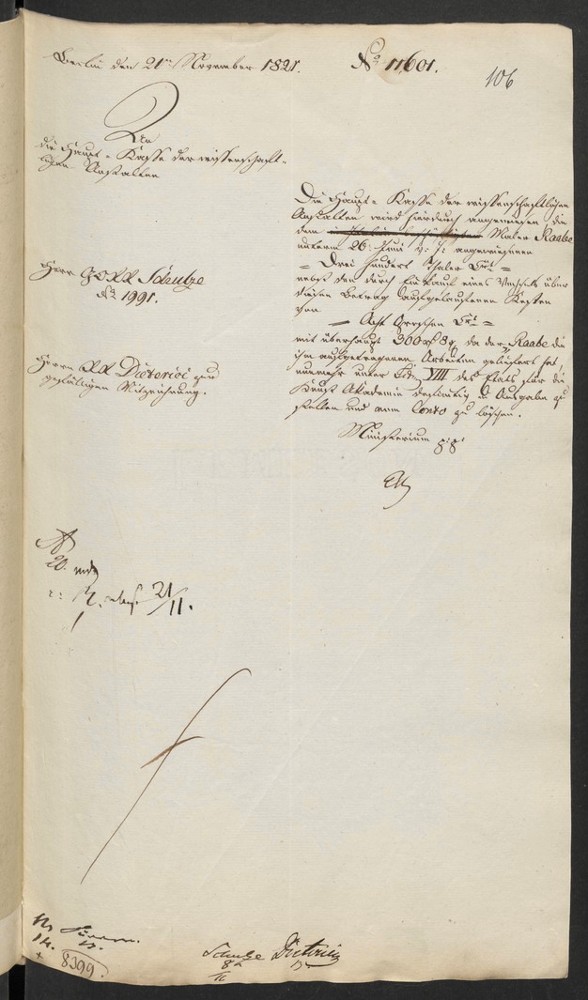 Berlin den 21ten November 1821.
No 11601.
106
An
die Haupt-Kasse der wissenschaft-
lichen Anstalten
Herr GORR Schulze
No 1991.
Herrn RR Dieterici zur
gefälligen Mitzeichnung.
Die Haupt-Kasse der wissenschaftlichen
Anstalten wird hierdurch angewiesen, die
dem Maler Raabe
unterm 26. Juni d. J. angewiesenen
= Drei Hundert Thaler Crt =
nebst den durch Einkauf eines Wechsels über
diesen Betrag aufgelaufenen Kosten
von
= Acht Groschen Crt =
mit überhaupt 300 rt 8 g, da der Raabe die
ihm aufgetragenen Arbeiten geliefert hat,
nunmehr unter Tit. VIII des Etats für die
Kunst Akademie in Ausgabe zu
stellen und vom Conto zu löschen.
Ministerium pp
20.
21/11.
8399
Schulze Dieterici